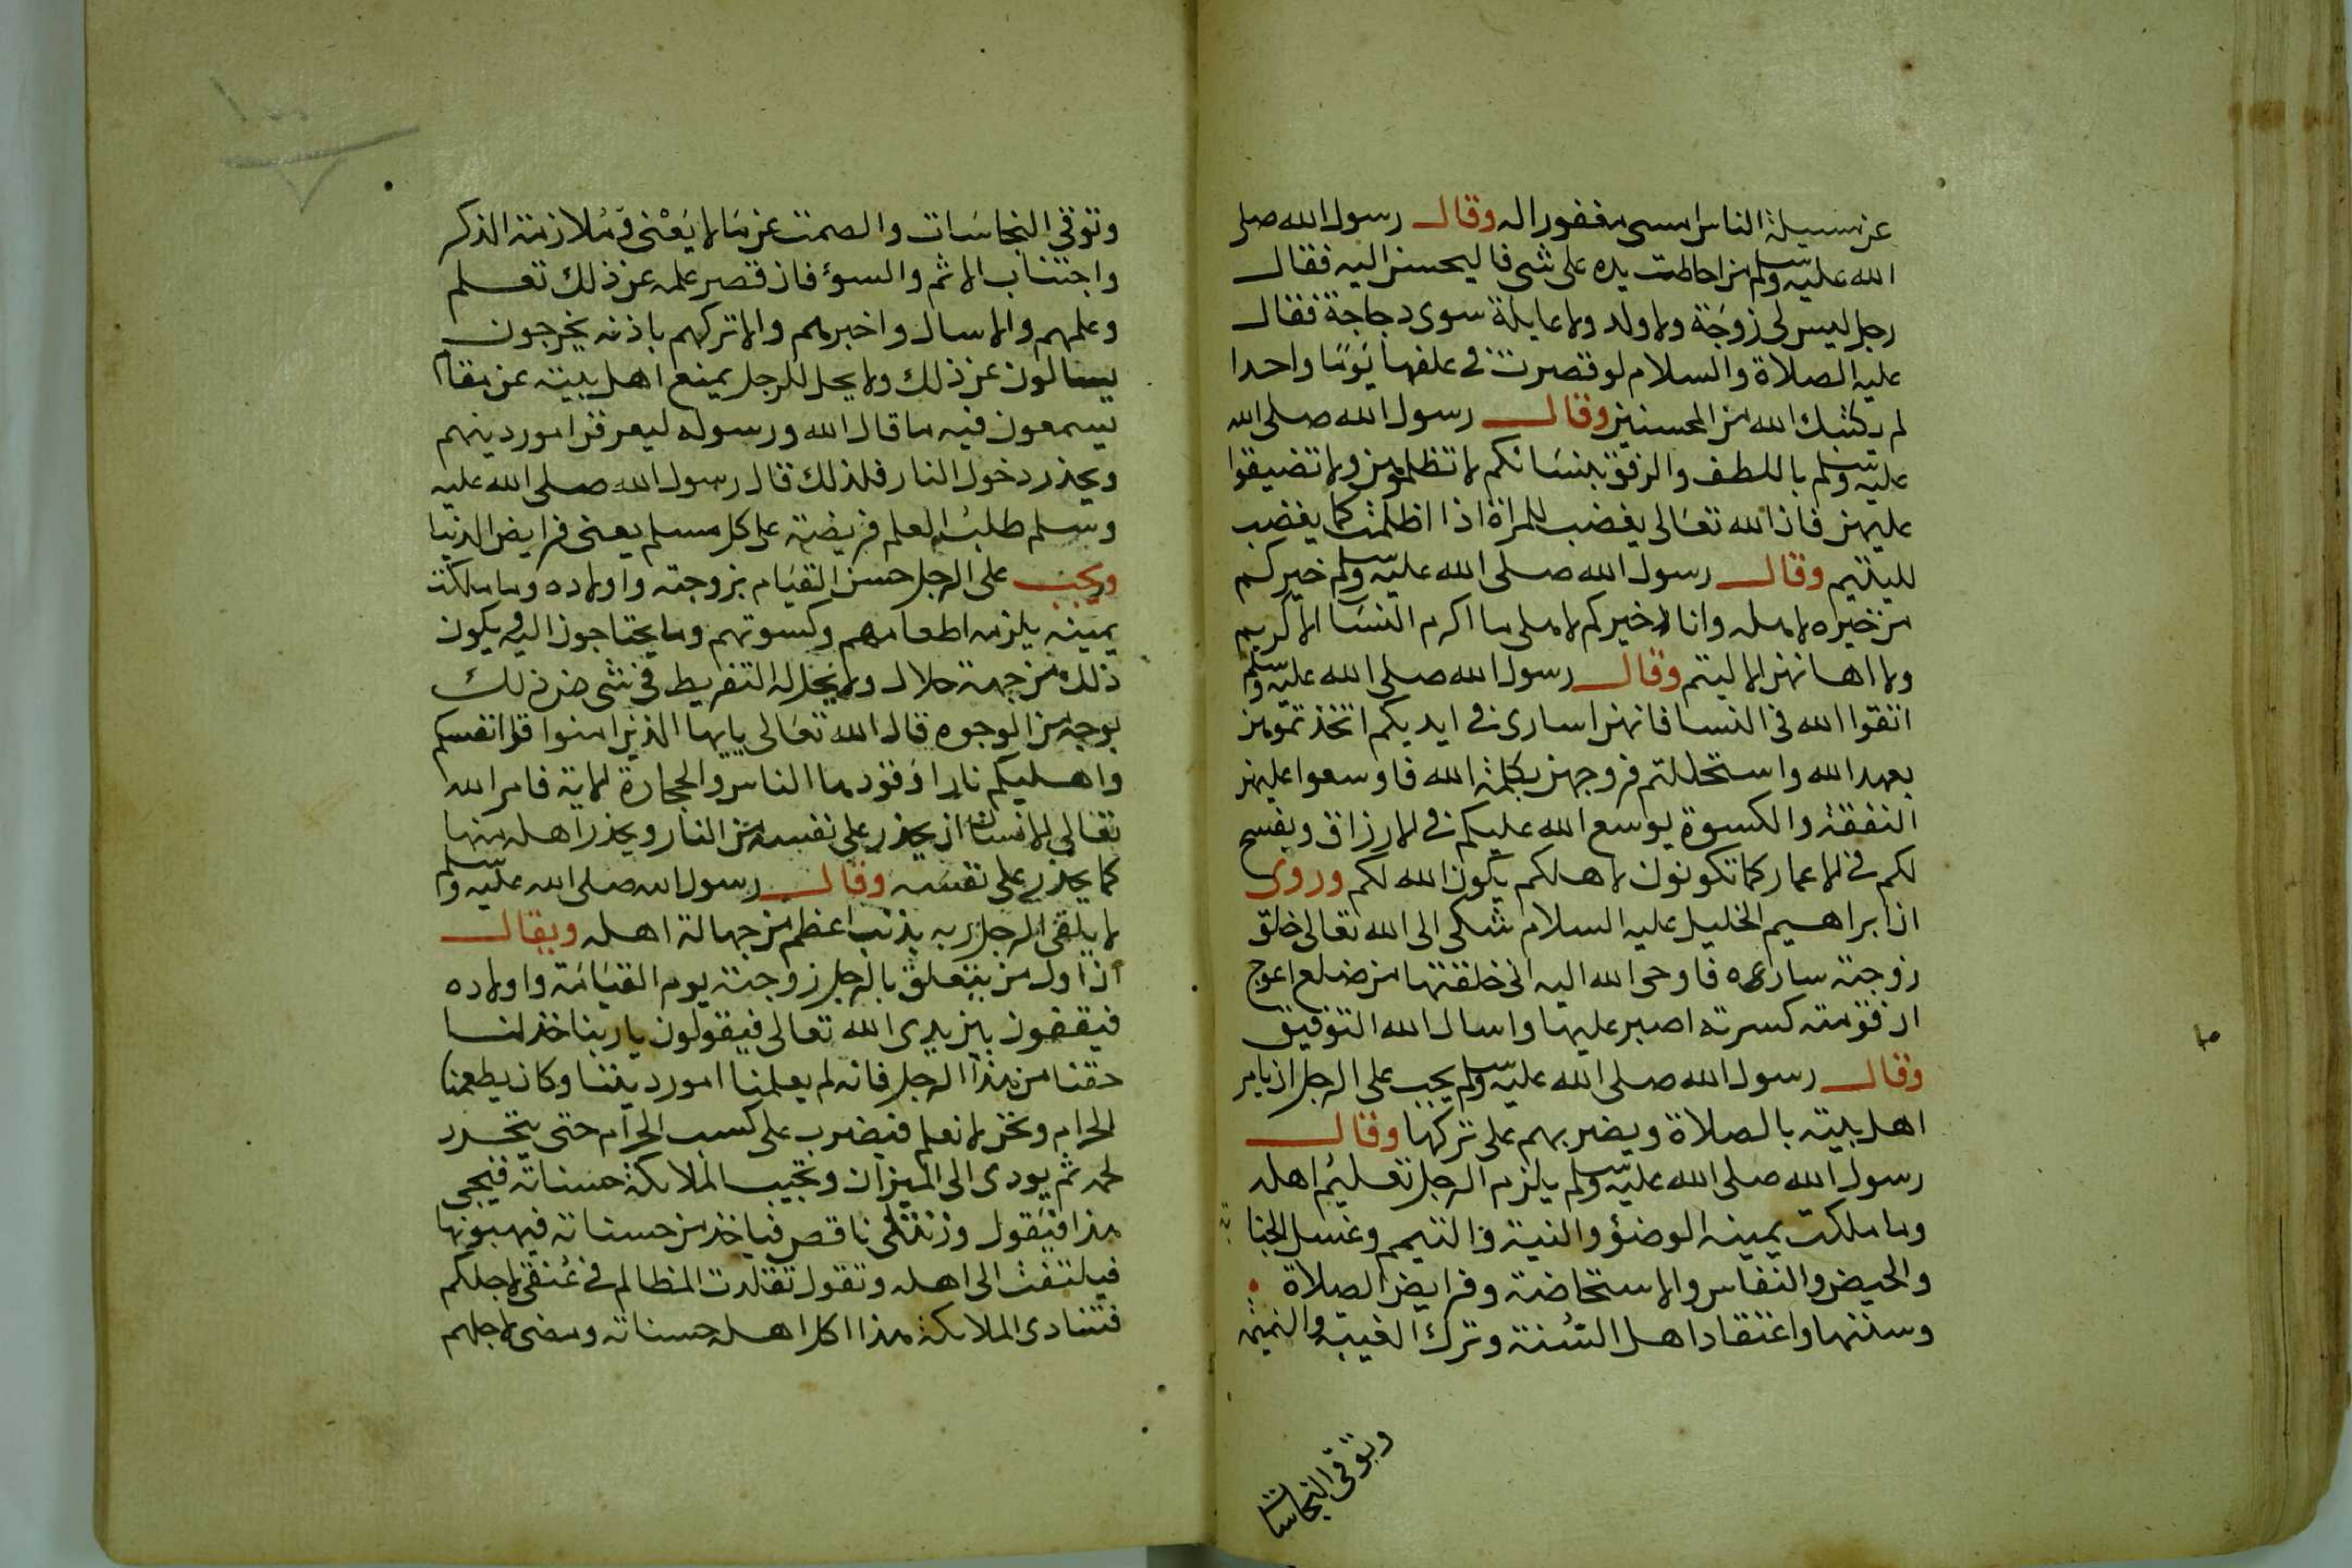 عن مسيلة الناس امسى مغفورا له وقال رسول الله صلى
الله عليه وسلم من احاطت يده على شى فاليحسن اليه فقال
رجل ليس لى زوجة ولا ولد ولا عايلة سوى دجاجة فقال
عليه الصلاة والسلام لو قصرت في علفها يوما واحدا
لم يكتبك الله من المحسنين وقال رسول الله صلى الله
عليه وسلم باللطف والرفق بنسائكم لا تظلموهن ولا تضيقوا
عليهن فان الله تعالى يغضب للمراة اذا اظلمت كما يغضب
لليتيم وقال رسول الله صلى الله عليه وسلم خيركم
من خيره لاهله وانا لاخيركم لاهلى ما اكرم النسا الا كريم
ولا اهانهن الا ليتم وقال رسول الله صلى الله عليه وسلم
اتقوا الله في النسا فانهن اسارى في ايديكم اتخذتموهن
بعهد الله واستحللتم فروجهن بكلمة الله فاوسعوا عليهن
النفقة والكسوة يوسع الله عليكم في الارزاق ويفسح
لكم في الاعمار كما تكونون لاهلكم يكون الله لكم وروى
ان ابراهيم الخليل عليه السلام شكى الى الله تعالى خلق
زوجته ساره فاوحى الله اليه انى خلقتها من ضلع اعوج
ان قومته كسرته اصبر عليها واسال الله التوفيق
وقال رسول الله صلى الله عليه وسلم يجب على الرجل ان يامر
اهل بيته بالصلاة ويضربهم على تركها وقال
رسول الله صلى الله عليه وسلم يلزم الرجل تعليم اهله
وما ملكت يمينه الوضؤ والنية والتيمم وغسل الجنا
بة
والحيض والنفاس والاستحاضة وفرايض الصلاة
وسننها واعتقاد اهل السنة وترك الغيبة والنميمة
وتوقى النجاسات
وتوقى النجاسات والصمت عن ما لا يعنى وملازمة الذكر
واجتناب الاثم والسوء فان قصر علمه عن ذلك تعلم
وعلمهم والا سال واخبرهم والا تركهم باذنه يخرجون
يسالون عن ذلك ولا يحل للرجل يمنع اهل بيته عن مقام
يسمعون فيه ما قال الله ورسوله ليعرفن امور دينهم
ويحذر دخول النار فلذلك قال رسول الله صلى الله عليه
وسلم طلب العلم فريضة على كل مسلم يعنى فرايض الدنيا
ويجب على الرجل حسن القيام بزوجته واولاده وما ملكت
يمينه يلزمه اطعامهم وكسوتهم وما يحتاجون اليه ويكون
ذلك من جهة حلال ولا يحل له التفريط في شى من ذلك
بوجه من الوجوه قال الله تعالى يايها الذين امنوا قوا انفسكم
واهليكم نارا وقودها الناس والحجارة الاية فامر الله
تعالى الانسان ان يحذر على نفسه من النار ويحذر اهله منها
كما يحذر على نفسه وقال رسول الله صلى الله عليه وسلم
لا يلقى الرجل ربه بذنب اعظم من جهالة اهله ويقال
ان اول من يتعلق بالرجل زوجته يوم القيامة واولاده
فيقفون بين يدى الله تعالى فيقولون يا ربنا خذ لنا
حقنا من هذا الرجل فانه لم يعلمنا امور ديننا وكان يطعمنا
الحرام ونحن لا نعلم فيضرب على كسب الحرام حتى يتجرد
لحمه ثم يودى الى الميزان وتجيب الملايكة حسناته فيجى
هذا فيقول وزنتى ناقص فياخذ من حسناته فيهبونها
فيلتفت الى اهله وتقول تقلدت المظالم في عنقى لاجلكم
فتنادى الملايكة هذا اكل اهله حسناته ومضى لاجلهم